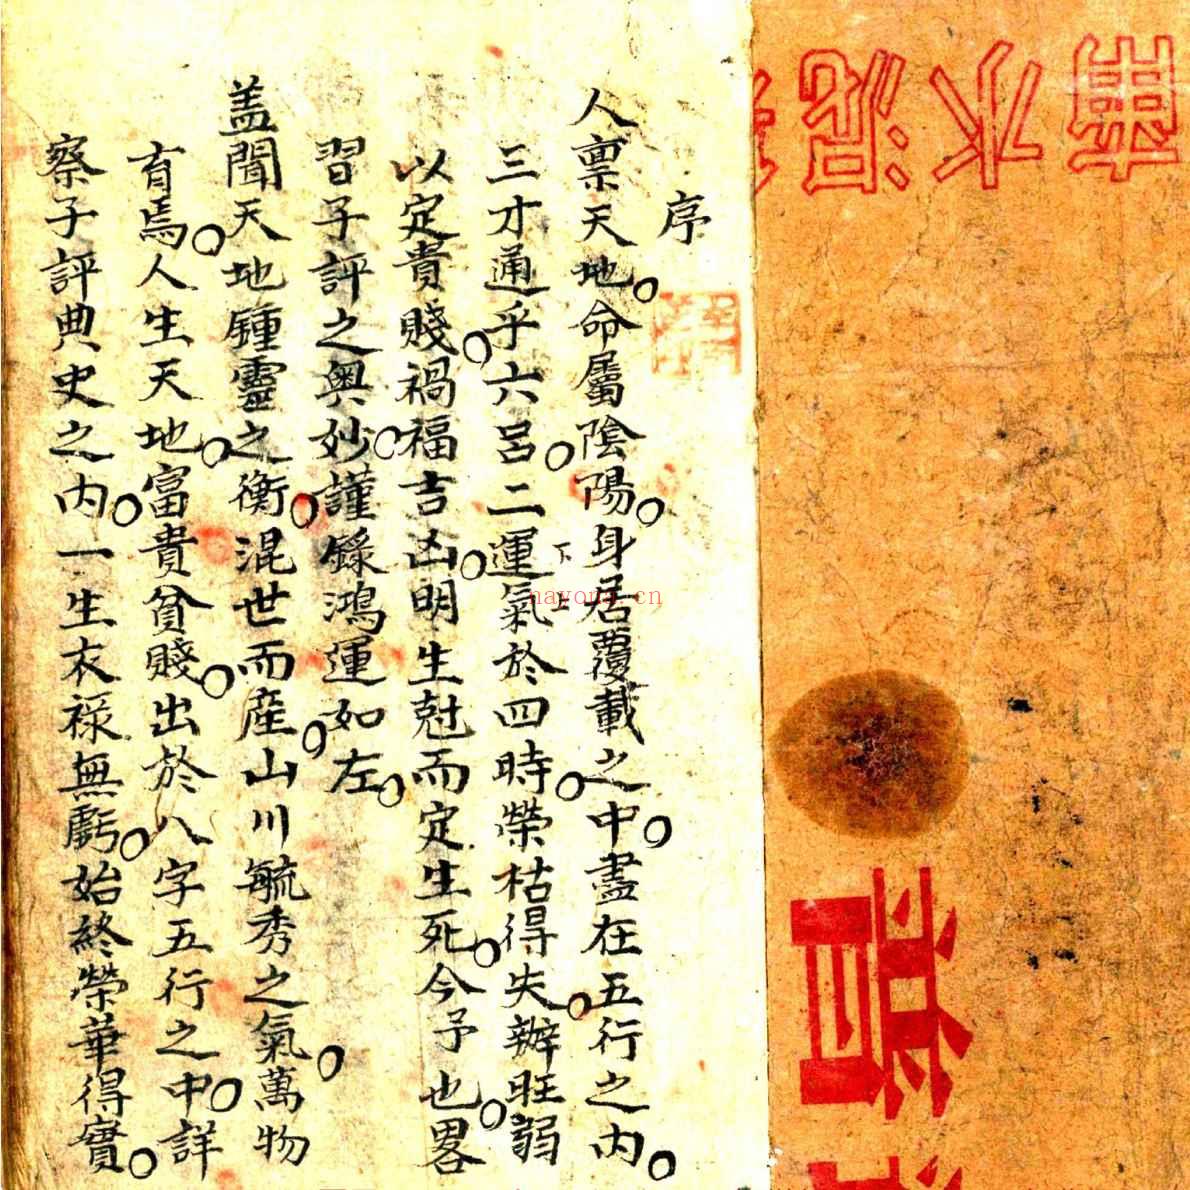 序
人禀天地。命屬陰陽。身居覆載之中。盡在五行之内。
三才通乎六呂。二運氣於四時。榮枯得失。辦旺弱
下上
以定貴賤。禍福吉凶。明生尅而定生死。今予也。畧
習子評之奥妙。謹錄鴻運如左。
盖聞天地鍾靈之衡。混世而産。山川毓秀之氣。萬物
育焉。人生天地。富貴貧賤。出於八字五行之中。詳
察子評典史之内。一生衣禄無虧。始終榮華得實。
nayona.cn
水泥
普